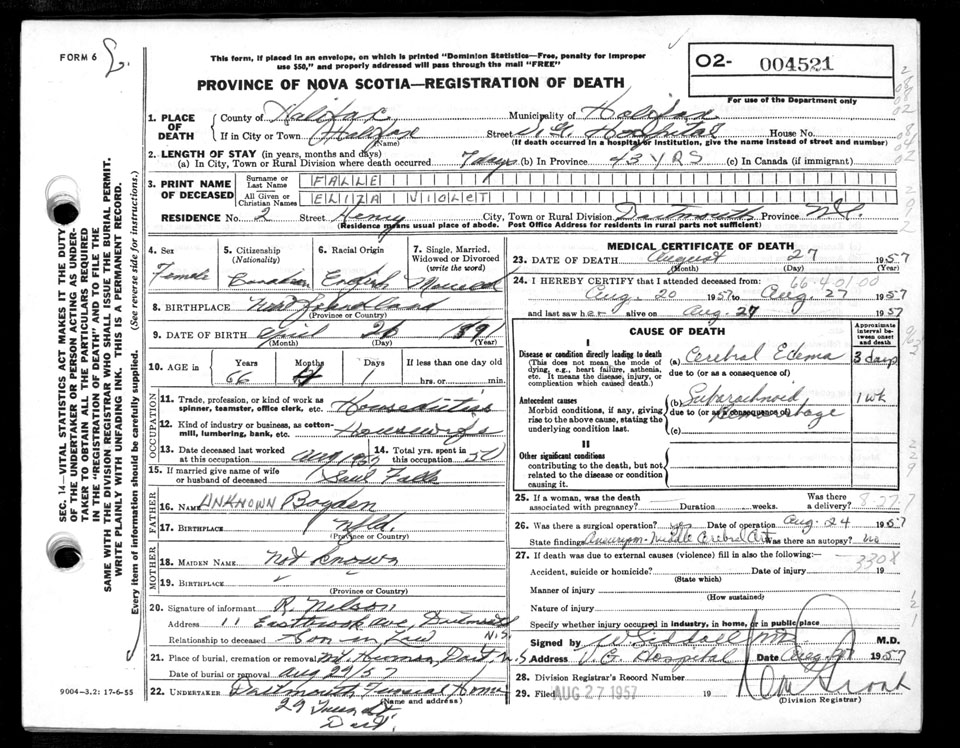 FORM 6
This form, if placed in an envelope, on which is printed "Dominion Statistics—Free, penalty for improper
use $50," and properly addressed will pass through the mail "FREE"
PROVINCE OF NOVA SCOTIA—REGISTRATION OF DEATH
02- 004521
For use of the Department only
1. PLACE OF DEATH County of Halifax Municipality of Halifax
If in City or Town Halifax (Name) Street V.G. Hospital House No.
(If death occurred in a hospital or institution, give name instead of street and number)
2. LENGTH OF STAY (in years, months and days)
(a) In City, Town or Rural Division where death occurred 7 days (b) In Province 43 YRS (c) In Canada (if immigrant)
3. PRINT NAME OF DECEASED Surname or Last Name FALLE
All Given or Christian Names ELIZA VIOLET
RESIDENCE No. 2 Street Henry City, Town or Rural Division Dartmouth Province N.S.
(Residence means usual place of abode. Post Office Address for residents in rural parts not sufficient)
4. Sex Female
5. Citizenship (Nationality) Canadian
6. Racial Origin English
7. Single, Married, Widowed or Divorced (write the word) Married
8. BIRTHPLACE Newfoundland
(Province or Country)
9. DATE OF BIRTH April 26 1891
(Month) (Day) (Year)
10. AGE in Years 66 Months 4 Days 1 If less than one day old hrs. or min.
OCCUPATION
11. Trade, profession, or kind of work as spinner, teamster, office clerk, etc. Houseduties
12. Kind of industry or business, as cotton-mill, lumbering, bank, etc. Housewife
13. Date deceased last worked at this occupation Aug 1957 14. Total yrs. spent in this occupation 50
15. If married give name of wife or husband of deceased Falle
FATHER
16. NAME UNKNOWN Boyden
17. BIRTHPLACE Nfld.
(Province or Country)
MOTHER
18. MAIDEN NAME Not Known
19. BIRTHPLACE
(Province or Country)
20. Signature of informant R. Nelson
Address 11 Eastbrook Ave, Dartmouth N.S.
Relationship to deceased Son in Law
21. Place of burial, cremation or removal Mt. Hermon, Dart N.S
Date of burial or removal Aug 29/57
22. UNDERTAKER Dartmouth Funeral Home
(Name and address)
29 St.
Dart.
9004-3.2: 17-6-55
SEC. 14—VITAL STATISTICS ACT MAKES IT THE DUTY
OF THE UNDERTAKER OR PERSON ACTING AS UNDER-
TAKER TO OBTAIN ALL THE PARTICULARS REQUIRED
IN THE "REGISTRATION OF DEATH" AND TO FILE THE
SAME WITH THE DIVISION REGISTRAR WHO SHALL ISSUE THE BURIAL PERMIT.
WRITE PLAINLY WITH UNFADING INK. THIS IS A PERMANENT RECORD.
Every item of information should be carefully supplied. (See reverse side for instructions.)
MEDICAL CERTIFICATE OF DEATH
23. DATE OF DEATH August 27 1957
(Month) (Day) (Year)
24. I HEREBY CERTIFY that I attended deceased from: 66-4-01-00
Aug. 20 1957 to Aug. 27 1957
and last saw her alive on Aug. 27 1957
CAUSE OF DEATH
Approximate interval between onset and death
I
Disease or condition directly leading to death
(This does not mean the mode of dying, e.g., heart failure, asthenia, etc. It means the disease, injury, or complication which caused death.)
(a) Cerebral Edema 3 days
due to (or as a consequence of)
Antecedent causes
Morbid conditions, if any, giving rise to the above cause, stating the underlying condition last.
(b) Subarachnoid Hemorrhage 1 wk
due to (or as a consequence of)
(c)
II
Other significant conditions
contributing to the death, but not related to the disease or condition causing it.
25. If a woman, was the death associated with pregnancy? Duration weeks. Was there a delivery? 8-27-7
26. Was there a surgical operation? yes Date of operation Aug. 24 1957
State findings Aneurysm-Middle Cerebral Art Was there an autopsy? no
27. If death was due to external causes (violence) fill in also the following:— 330X
Accident, suicide or homicide? Date of injury 19
(State which)
Manner of injury
(How sustained)
Nature of injury
Specify whether injury occurred in industry, in home, or in public place
Signed by W Siddall MD M.D.
Address V.G. Hospital Date Aug 27 1957
28. Division Registrar's Record Number
29. Filed AUG 27 1957 19
(Division Registrar)